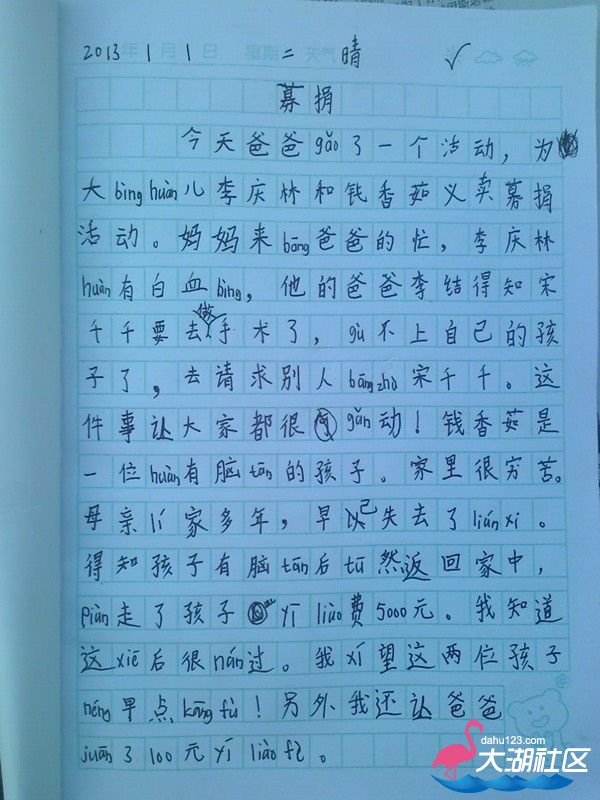 2013年1月1日 星期二 天气晴 ✓
募捐
今天爸爸gǎo了一个活动，为
大bìng huàn儿李庆林和钱香茹义卖募捐
活动。妈妈来bāng爸爸的忙，李庆林
huàn有白血bìng，他的爸爸李结得知宋
千千要去做手术了，gù不上自己的孩
子了，去请求别人bāng zhù宋千千。这
件事让大家都很gǎn动！钱香茹是
一位huàn有脑tān的孩子。家里很穷苦。
母亲lí家多年，早已失去了lián xì。
得知孩子有脑tān后tū然返回家中，
piàn走了孩子yī liáo费5000元。我知道
这xiē后很nán过。我xī望这两位孩子
néng早点kāng fù！另外我还让爸爸
juān了100元yī liáo fèi。
dahu123.com
大湖社区